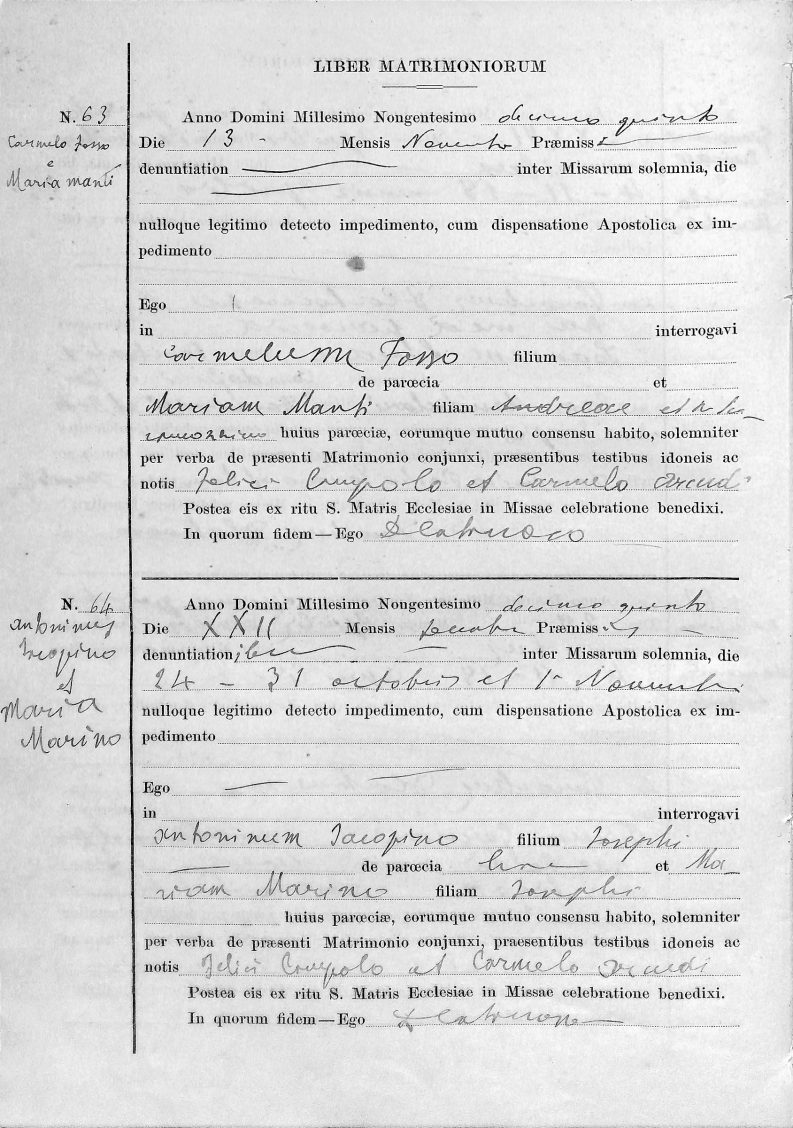 LIBER MATRIMONIORUM
N. 63
Carmelo Fosso
e
Maria Mantí
Anno Domini Millesimo Nongentesimo decimo quinto
Die 13 - Mensis Novembr Præmiss
denuntiation inter Missarum solemnia, die
nulloque legitimo detecto impedimento, cum dispensatione Apostolica ex im-
pedimento
Ego
in interrogavi
Carmelum Fosso filium
de parœcia et
Mariam Manti filiam Andreae et
huius parœciæ, eorumque mutuo consensu habito, solemniter
per verba de præsenti Matrimonio conjunxi, præsentibus testibus idoneis ac
notis Felici Crupolo et Carmelo
Postea eis ex ritu S. Matris Ecclesiae in Missae celebratione benedixi.
In quorum fidem — Ego
N. 64
Antoninus
Iacopino
et
Maria
Marino
Anno Domini Millesimo Nongentesimo decimo quinto
Die XXII Mensis Præmiss
denuntiation inter Missarum solemnia, die
24 - 31 octobris et 1 Novembri
nulloque legitimo detecto impedimento, cum dispensatione Apostolica ex im-
pedimento
Ego
in interrogavi
Antoninum Iacopino filium Iosephi
de parœcia et Ma
riam Marino filiam Iosephi
huius parœciæ, eorumque mutuo consensu habito, solemniter
per verba de præsenti Matrimonio conjunxi, praesentibus testibus idoneis ac
notis Felici Crupolo et Carmelo
Postea eis ex ritu S. Matris Ecclesiae in Missae celebratione benedixi.
In quorum fidem — Ego